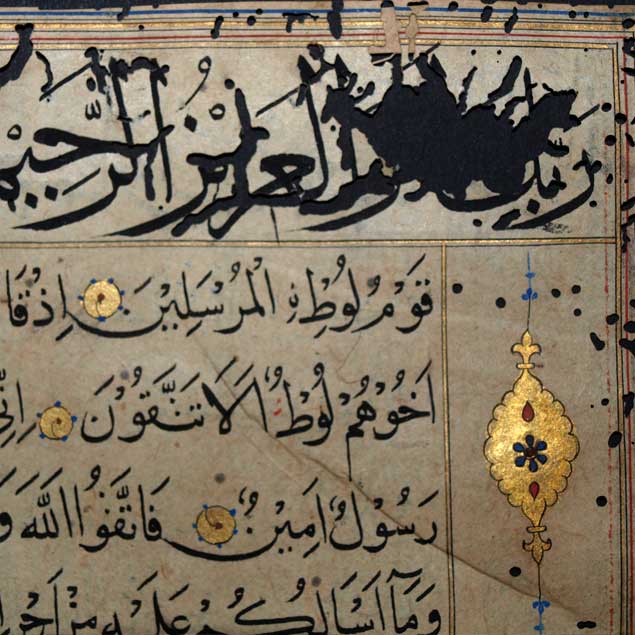 رَبَّكَ لَهُوَ الْعَزِيزُ الرَّحِيمُ
قَوْمُ لُوطٍ نِ الْمُرْسَلِينَ اِذْ قَا
اَخُوهُمْ لُوطٌ اَلَا تَتَّقُونَ اِنِّي
رَسُولٌ اَمِينٌ فَاتَّقُوا اللَّهَ وَ
وَمَآ اَسْاَلُكُمْ عَلَيْهِ مِنْ اَجْرٍ